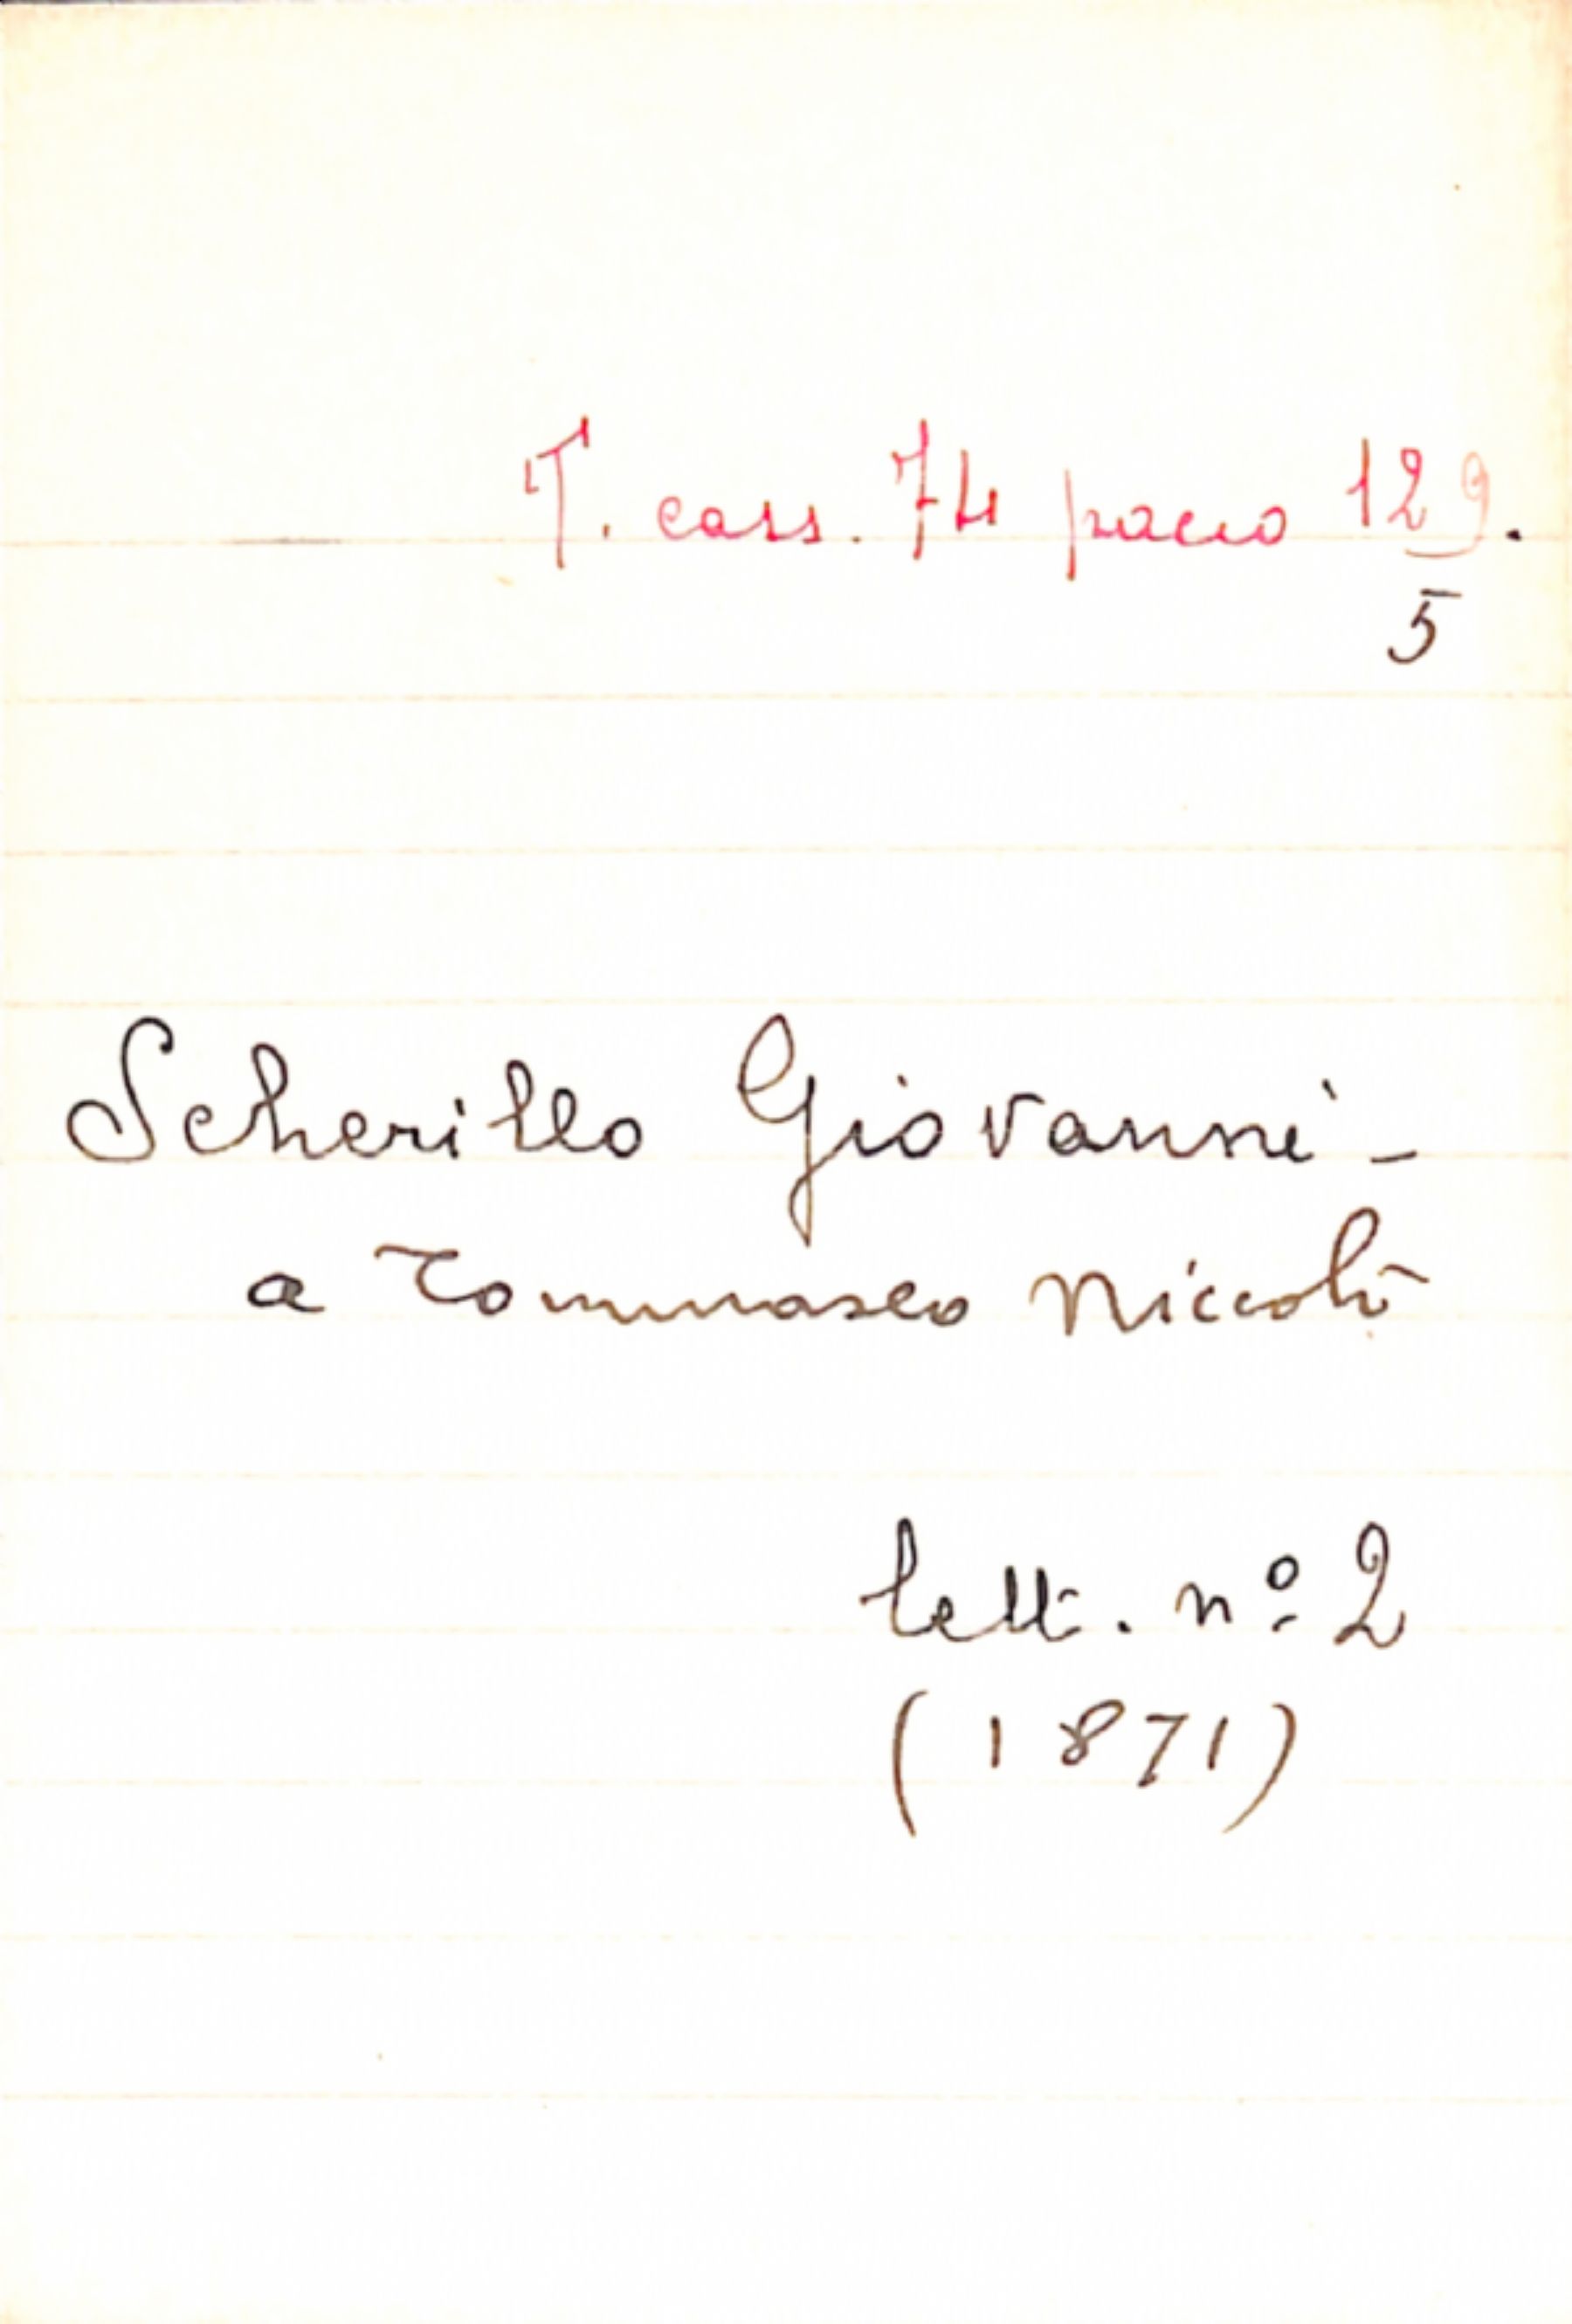 T. cass. 74 pacco 129.
5
Scherillo Giovanni -
a Tommaseo Niccolò
lett. nº 2
(1871)